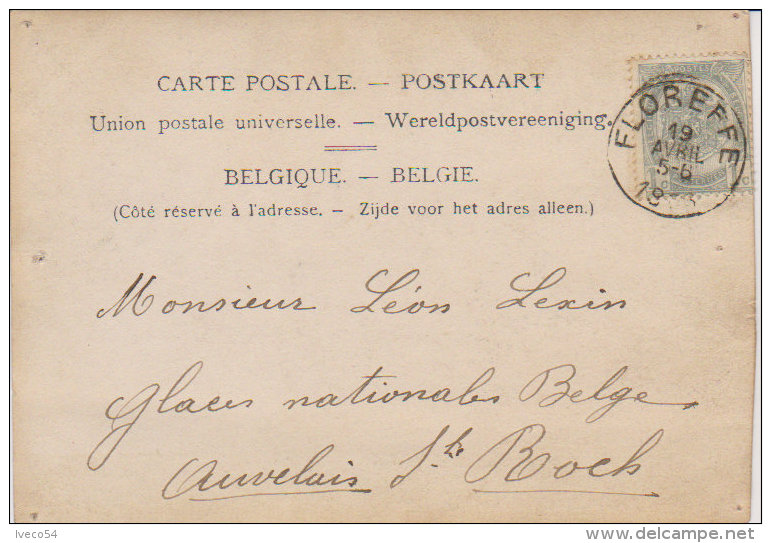 CARTE POSTALE. — POSTKAART
Union postale universelle. — Wereldpostvereeniging.
BELGIQUE. — BELGIE.
(Côté réservé à l'adresse. — Zijde voor het adres alleen.)
POSTES
FLOREFFE
19
AVRIL
5-6
19
Monsieur Léon Lexin
Glaces nationales Belge
Auvelais St. Roch
Iveco54
delcampe.net